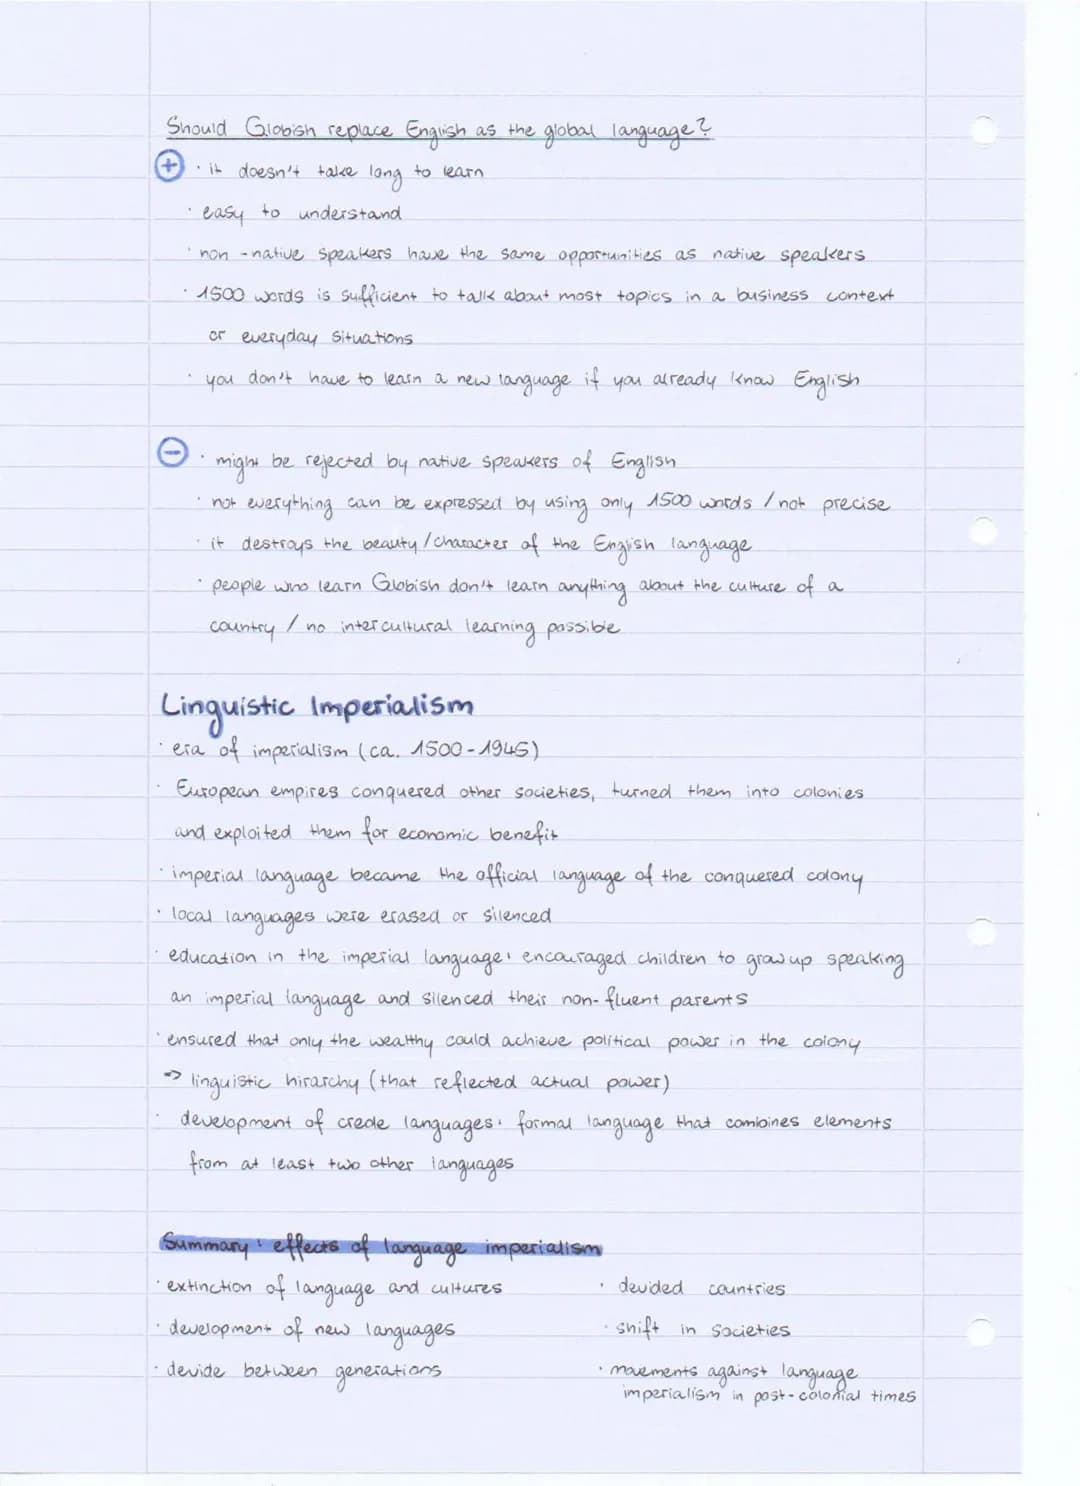 Should Globish replace English as the global language?
+ · it doesn't take long to learn
· easy to understand
· non-native speakers have the same opportunities as native speakers
· 1500 words is sufficient to talk about most topics in a business context
or everyday situations
· you don't have to learn a new language if you already know English
- · might be rejected by native speakers of English
· not everything can be expressed by using only 1500 words / not precise
· it destroys the beauty/character of the English language
· people who learn Globish don't learn anything about the culture of a
country / no intercultural learning possible
Linguistic Imperialism
· era of imperialism (ca. 1500-1945)
· European empires conquered other societies, turned them into colonies
and exploited them for economic benefit
· imperial language became the official language of the conquered colony
· local languages were erased or silenced
· education in the imperial language: encouraged children to grow up speaking
an imperial language and silenced their non-fluent parents
· ensured that only the wealthy could achieve political power in the colony
=> linguistic hirarchy (that reflected actual power)
· development of creole languages: formal language that combines elements
from at least two other languages
Summary: effects of language imperialism
· extinction of language and cultures
· development of new languages
· devide between generations
· devided countries
· shift in societies
· movements against language
imperialism in post-colonial times